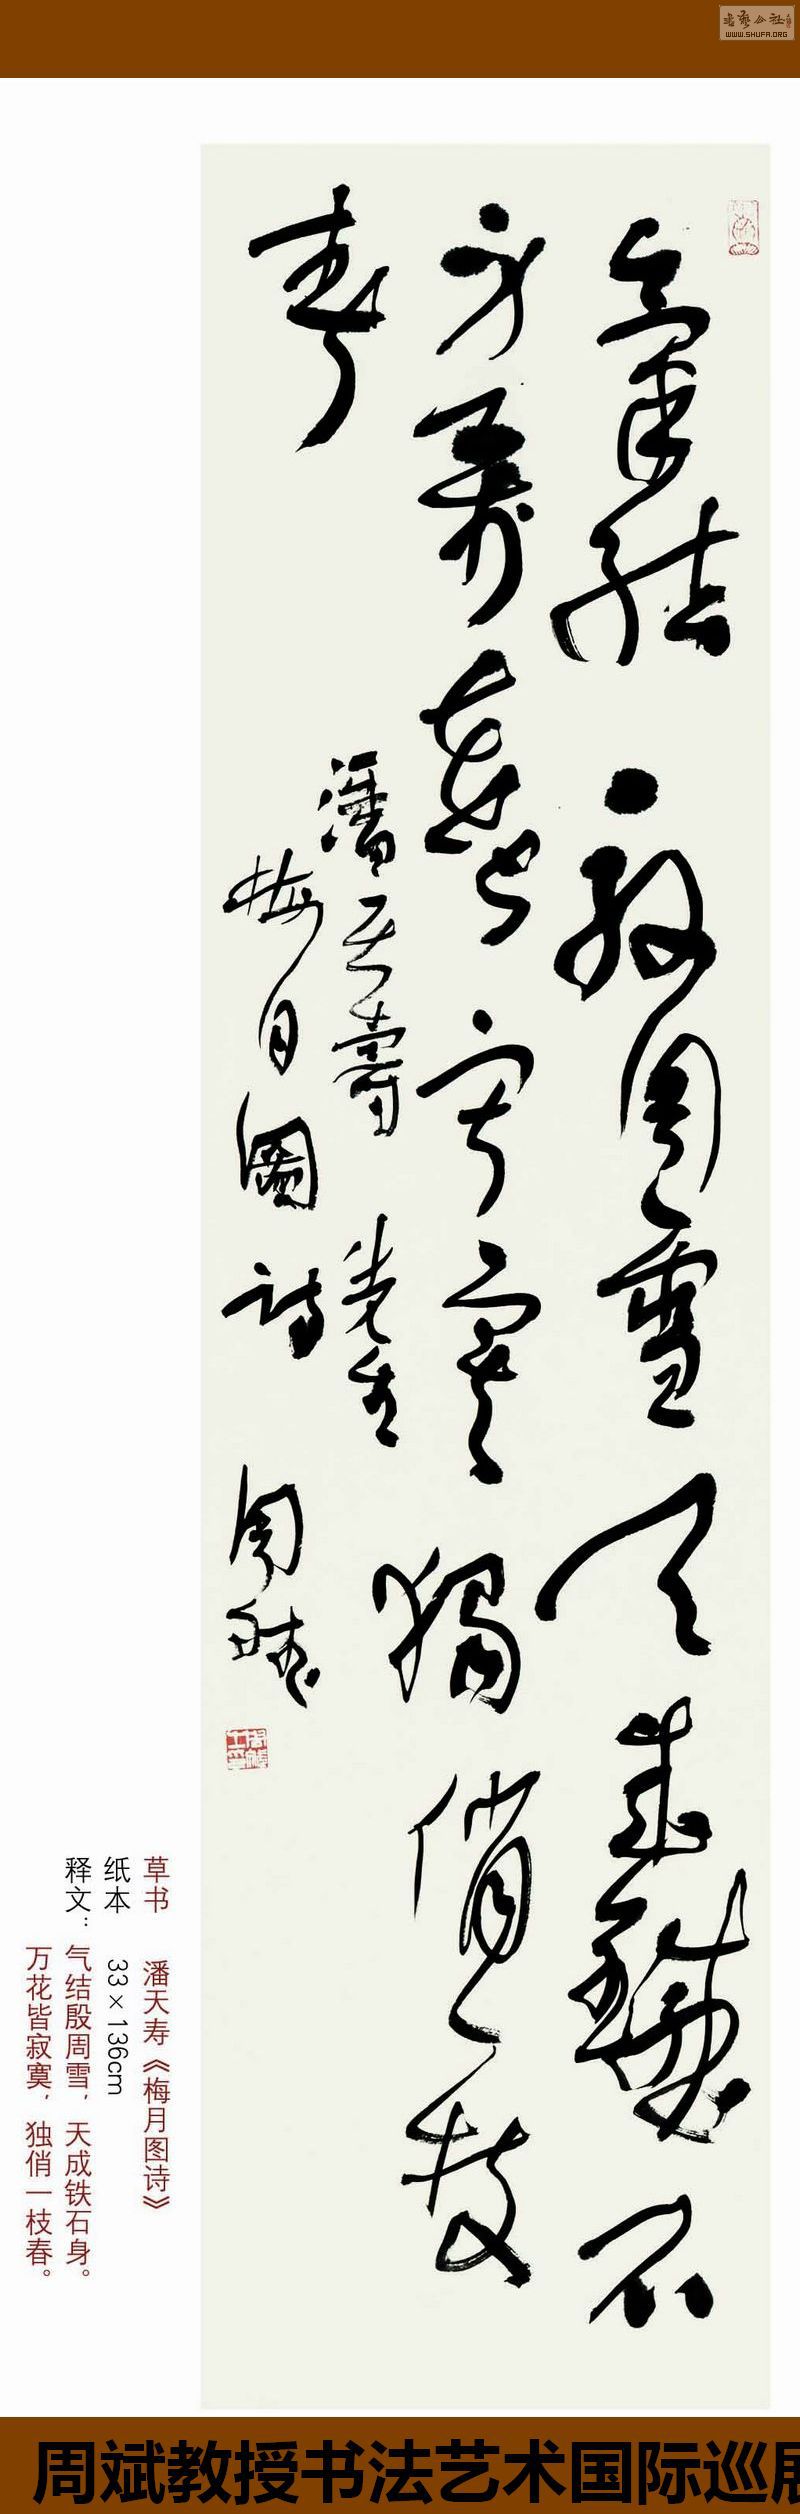 書藝公社
WWW.SHUFA.ORG
氣結殷周雪天成鐵石
身萬花皆寂寞獨俏一枝
春
潘天壽先生
梅月圖詩
周斌
草书 潘天寿《梅月图诗》
纸本 33×136cm
释文：气结殷周雪，天成铁石身。
万花皆寂寞，独俏一枝春。
周斌教授书法艺术国际巡展